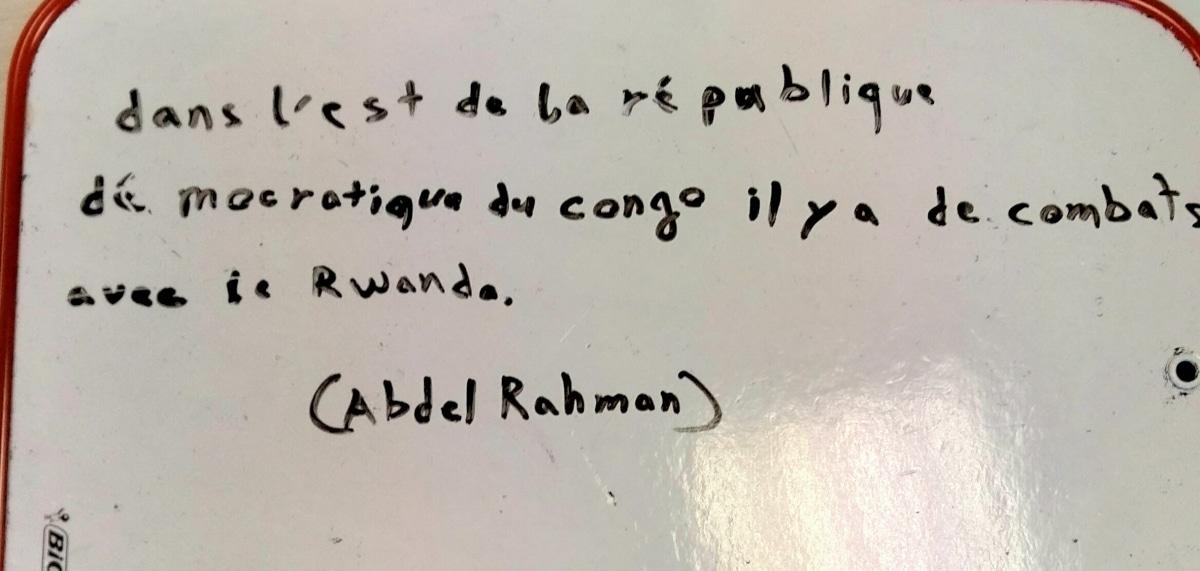 dans l'est de la république
démocratique du congo il y a de combats
avec le Rwanda.
(Abdel Rahman)
BIC